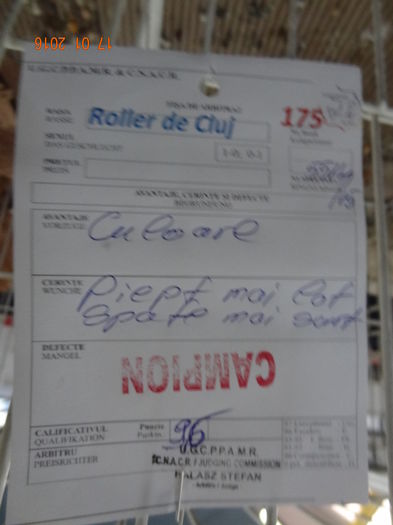 17 01 2016
U.G.C.P.P.A.M.R. & C.N.A.C.R.
FISA DE ARBITRAJ
RASA
RASSE
Roller de Cluj
175
SEXUL
1-0, 0-1
PRETUL
PREIS
AVANTAJE, CERINTE SI DEFECTE
AVANTAJE
VORZUGE
Culoare
CERINTE
WUNCHE
Piept mai lat
Spate mai scurt
DEFECTE
MANGEL
CAMPION
CALIFICATIVUL
QUALIFIKATION
Puncte
Punkte
96
ARBITRU
PREISRICHTER
U.G.C.P.P.A.M.R.
C.N.A.C.R / JUDGING COMMISSION
HALASZ STEFAN
Arbitru / Judge